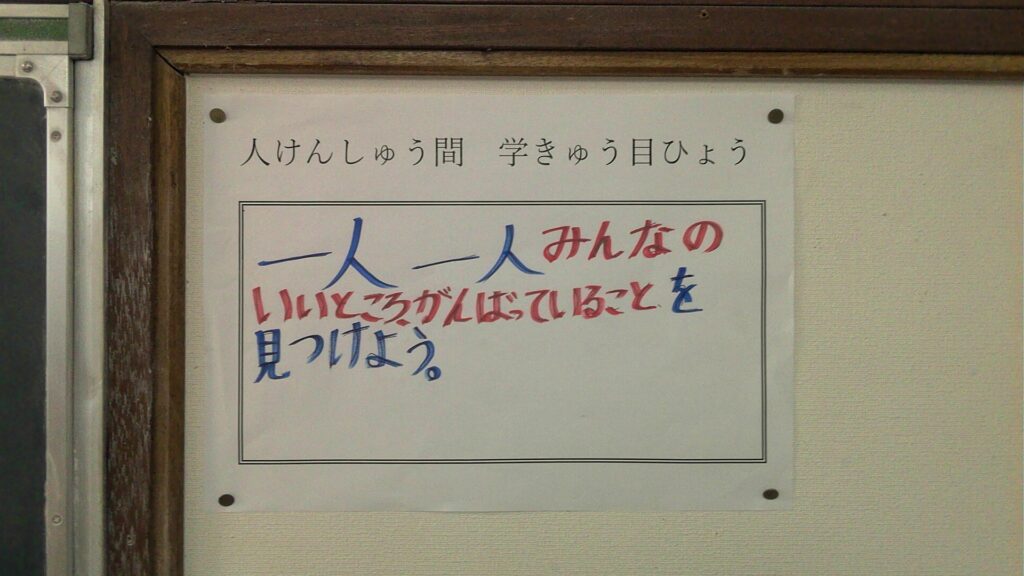 人けんしゅう間　学きゅう目ひょう
一人一人みんなの
いいところ、がんばっていることを
見つけよう。